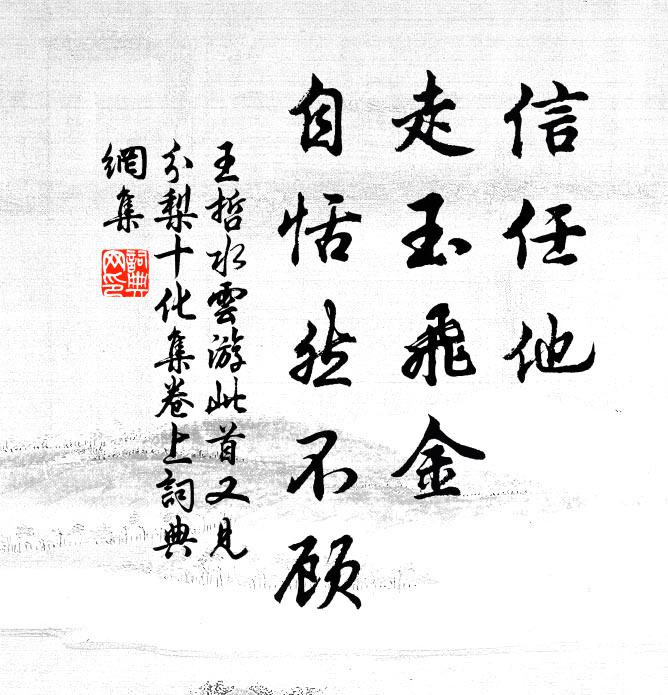 信任他
走玉飛金
自恬然不顾
王哲水雲游此首又見
分梨十化集卷上詞典
網集
詞典
网印